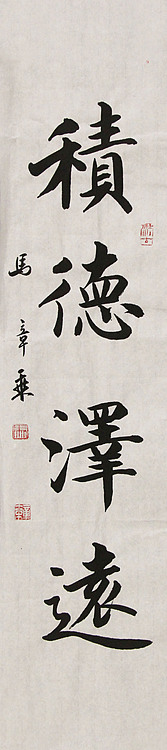 積德澤遠
馬章乘